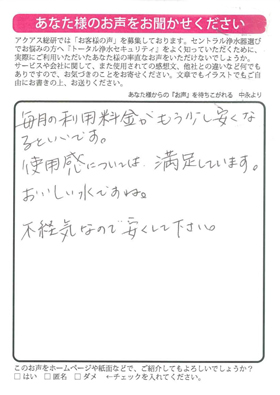 あなた様のお声をお聞かせください
アクアス総研では「お客様の声」を募集しております。セントラル浄水器選び
でお悩みの方へ「トータル浄水セキュリティ」をよく知っていただくために、
実際にご利用いただいたあなた様の率直なお声をいただけないでしょうか。
サービスや会社に関して、また使用されての感想文、他社との違いなど何でも
ありですので、お気づきのことをお寄せください。文章でもイラストでもご自
由にお書きの上、お送りください。
あなた様からの『お声』を待ちこがれる 中永より
毎月の利用料金がもう少し安くな
るといいです。
使用感については、満足しています。
おいしい水ですね。
不経気なので安くして下さい。
このお声をホームページや紙面などで、ご紹介してもよろしいでしょうか？
□はい □匿名 □ダメ ←チェックを入れてください。